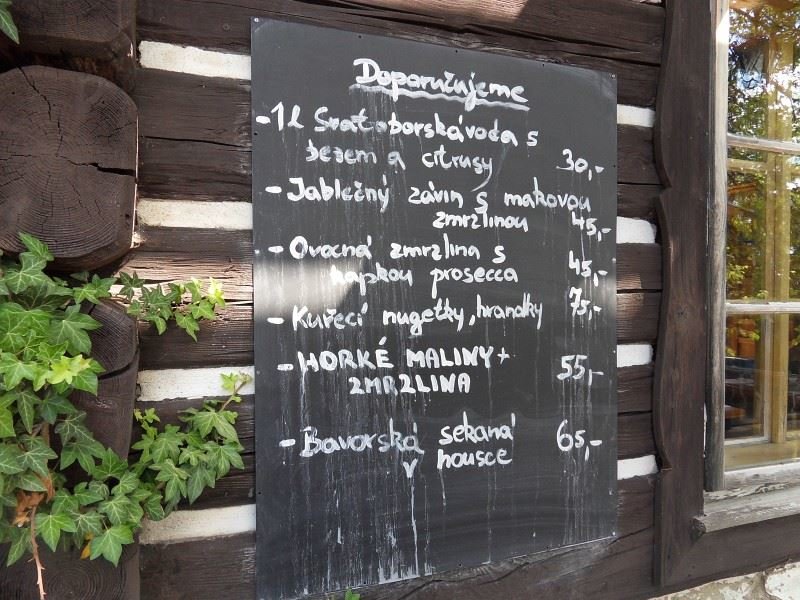 Doporučujeme
- 1l Svatoborská voda s
bezem a citrusy 30,-
- Jablečný závin s makovou
zmrzlinou 45,-
- Ovocná zmrzlina s
kapkou prosecca 45,-
- Kuřecí nugetky, hranolky 75,-
- HORKÉ MALINY +
ZMRZLINA 55,-
- Bavorská sekaná 65,-
v housce